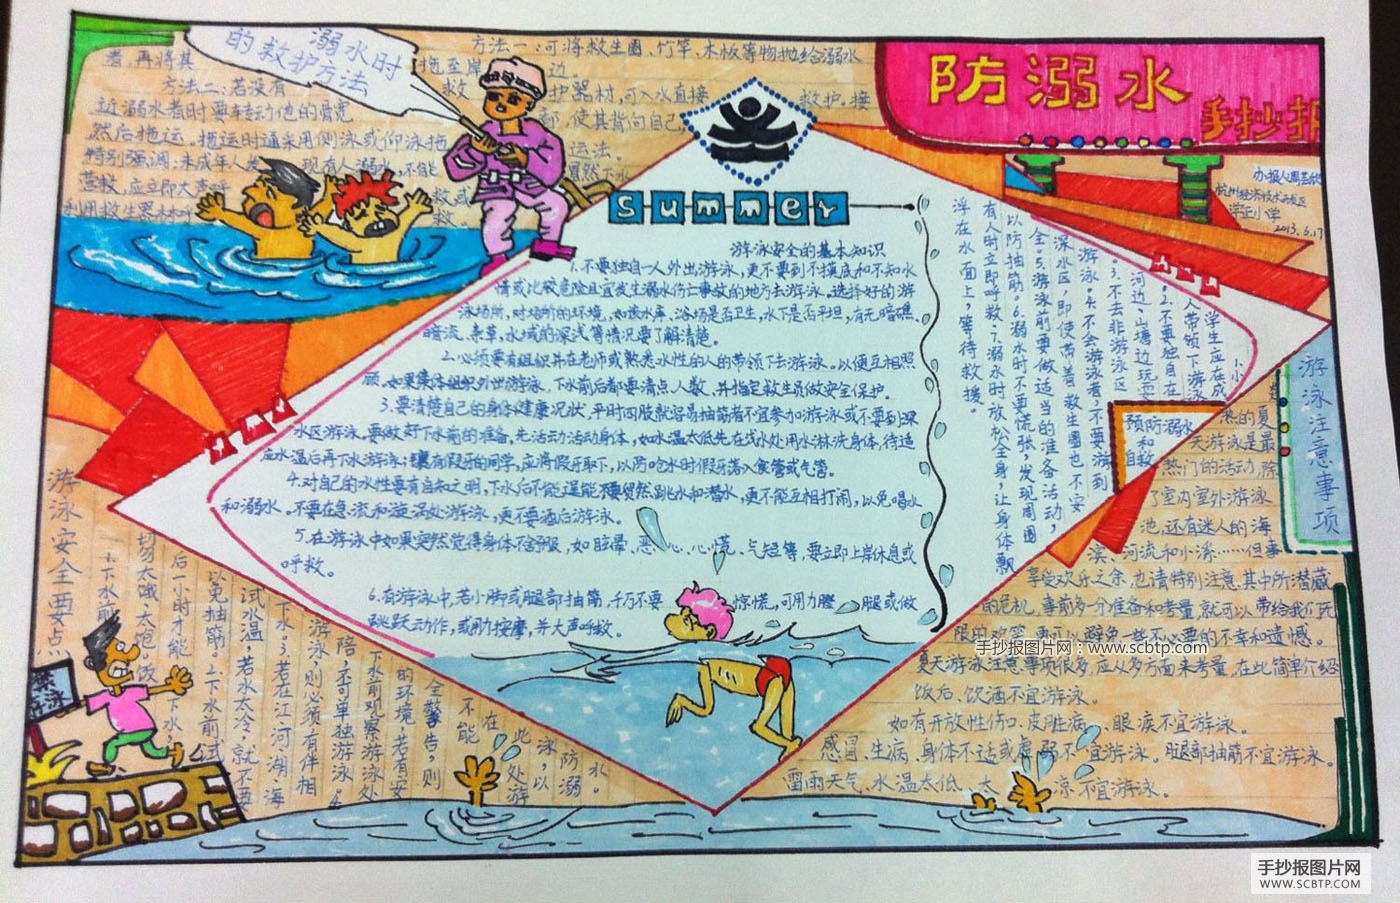 防溺水
手抄报
办报人周芸欣
杭州经济技术开发区
学正小学
2013.6.17
溺水时
的救护方法
方法一:可将救生圈、竹竿、木板等物抛给溺水
者,再将其
拖至岸
边。
方法二:若没有
救
护器材,可入水直接
救护。接
近溺水者时要转动他的髋
部,使其背向自己,
然后拖运。拖运时通采用侧泳或仰泳拖
运法。
特别强调:未成年人发
现有人溺水,不能
冒然下水
营救,应立即大声呼
救或
利用救生器材呼
救。
Summer
游泳安全的基本知识
1.不要独自一人外出游泳,更不要到不摸底和不知水
情或比较危险且宜发生溺水伤亡事故的地方去游泳。选择好的游
泳场所,对场所的环境,如该水库、浴场是否卫生,水下是否平坦,有无暗礁、
暗流、杂草,水域的深浅等情况要了解清楚。
2.必须要有组织并在老师或熟悉水性的人的带领下去游泳。以便互相照
顾。如果集体组织外出游泳,下水前后都要清点人数、并指定救生员做安全保护。
3.要清楚自己的身体健康况状,平时四肢就容易抽筋者不宜参加游泳或不要到深
水区游泳。要做好下水前的准备,先活动活动身体,如水温太低先在浅水处用水淋洗身体,待适
应水温后再下水游泳;镶有假牙的同学,应将假牙取下,以防呛水时假牙落入食管或气管。
4.对自己的水性要有自知之明,下水后不能逞能,不要贸然跳水和潜水,更不能互相打闹,以免喝水
和溺水。不要在急流和漩涡处游泳,更不要酒后游泳。
5.在游泳中如果突然觉得身体不舒服,如眩晕、恶心、心慌、气短等,要立即上岸休息或
呼救。
6.有游泳中,若小脚或腿部抽筋,千万不要惊慌,可用力蹬腿或做
跳跃动作,或用力按摩,并大声呼救。
预防溺水
和
自救
小学生应在成
人带领下游泳
2.不要独自在
河边、山塘边玩耍
3.不去非游泳区
游泳。4.不会游泳者,不要游到
深水区,即使带着救生圈也不安
全。5.游泳前要做适当的准备活动,
以防抽筋。6.溺水时不要慌张,发现周围
有人时立即呼救。7.溺水时放松全身,让身体飘
浮在水面上,等待救援。
游泳注意事项
热的夏
天游泳是最
热门的活动,除
了室内室外游泳
池,还有迷人的海
滨、河流和小溪……但事
享受欢乐之余,也请特别注意其中所潜藏
的危机,事前多一分准备和考量,就可以带给我们无
限的欢
避免一些不必要的不幸和遗憾。
夏天游泳注意事项很多,应从多方面来考量,在此简单介绍
饭后、饮酒不宜游泳。
如有开放性伤口、皮肤病、眼疾不宜游泳。
感冒、生病、身体不适或虚弱不宜游泳。腿部抽筋不宜游泳。
雷雨天气、水温太低、太凉不宜游泳。
游泳安全要点
1.下水前
切太饿、太饱。饭
后一小时才能下水,
以免抽筋;2.下水前试
试水温,若水太冷,就不要
下水。3.若在江、河、湖、海
游泳,则必须有伴相
陪,不可单独游泳。4.
下水前观察游泳处
的环境,若有安
全警告,则
不能
在此处游
泳,以
防溺水。
禁
游泳
手抄报图片网:www.scbtp.com
手抄报图片网
WWW.SCBTP.COM